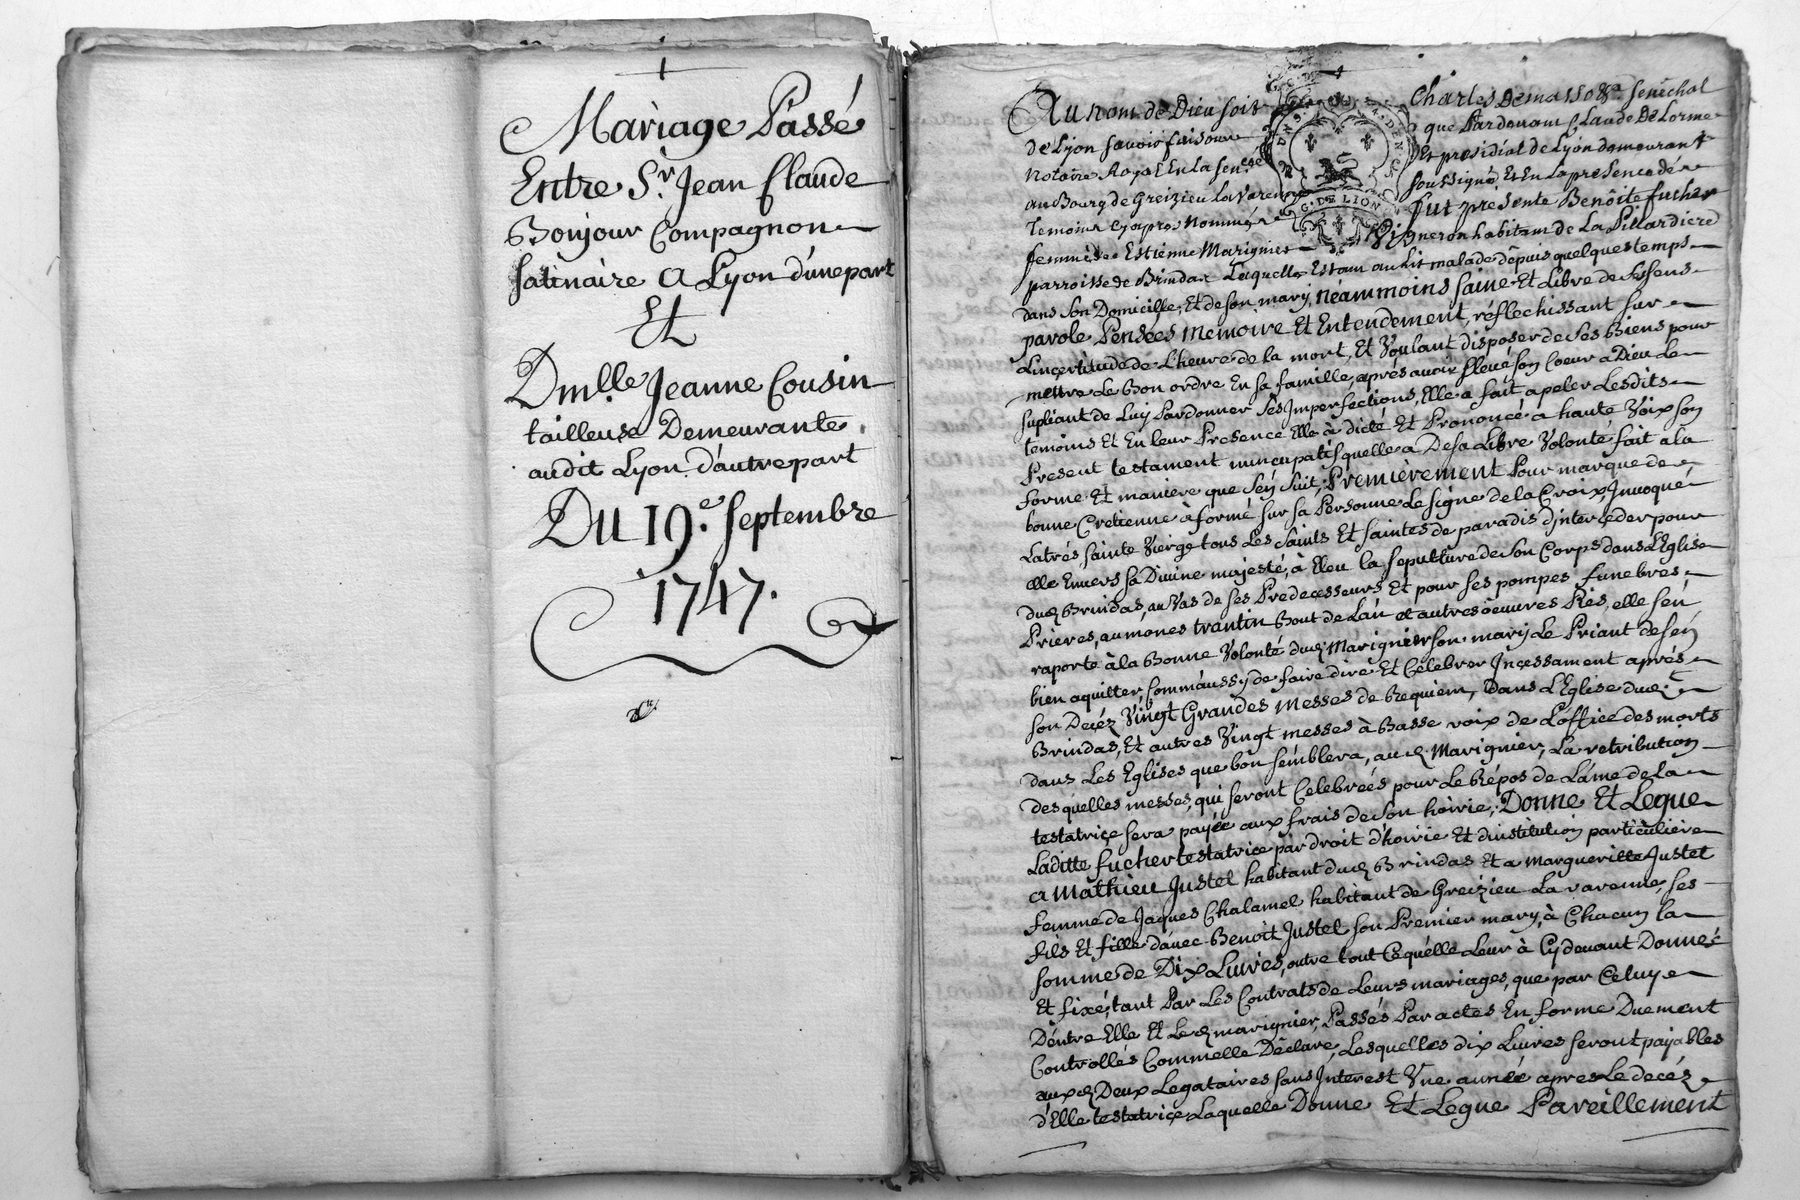 Mariage Passé
Entre Sr. Jean Claude
Bonjour Compagnon
satinaire a Lyon d'une part
Et
Dmlle. Jeanne Cousin
tailleuse Demeurante
audit Lyon d'autre part
Du 19.e septembre
1747.
Au nom de Dieu soit
Charles De masso &a. senéchal
de Lyon savoir faisons
que Pardevant Claude De Lorme
Notaire Royal En la sen.ssé
Et presidial de Lyon demeurant
au Bourg de Greizieu la Varenne
soussigné, Et En la presence dé
Temoins cy apres Nommés
fut presente Benoite fucher
femme de Estienne Marignier
Vigneron habitant de La Pillardiere
G. DE LION
parroisse de Brindas Laquelle Estant au lit malade dépuis quelques temps
dans son Domicille, Et de son mary, néammoins saine Et Libre de ses sens
parole Pensées memoire Et Entendement, réflechissant sur
Linçertitude de L'heure de la mort, Et Voulant disposer de ses Biens pour
mettre Le Bon ordre En sa famille, aprés avoir Elevé son Coeur a Dieu Le
supliant de Luy Pardonner ses Imperfections, Elle a fait apeler Lesdits
temoins Et En leur Presence Elle à dicté Et Prononcé a haute Voix son
Present testament nuncupatif quelle a De sa Libre Volonté fait a la
forme Et maniere que s'en suit, Premièrement Pour marque de
bonne Cretienne à formé sur sa Personne Le signe de la Croix, Invoqué
La trés sainte Vierge tous Les saints Et saintes de paradis d'interceder pour
elle Envers sa Divine majesté, à Eleu la sepulture de son Corps dans L'Eglise
dud. Brindas, au Vas de ses Predecesseurs Et pour ses pompes funebres,
Prieres, aumones trantin Bout de L'an et autres oeuvres Pies, elle s'en
raporte à la Bonne Volonté dud. Marignier son mary Le Priant de s'en
bien aquitter, Comm'aussy de faire dire Et Celebrer Inçessament aprés
son Deçéz Vingt Grandes messes de Requiem, Dans L'Eglise dud.
Brindas, Et autres Vingt messes à Basse voix de L'office des morts
dans Les Eglises que bon semblera, aud. Marignier, La retribution
desquelles messes, qui seront Celebreés pour Le Répos de L'âme de la
testatriçe sera payée aux frais de son hoirie; Donne Et Legue
Laditte fucher testatrice par droit d'hoirie Et dinstitution particùliere
a Mathieu Justel habitant dud. Brindas Et a margueritte Justel
femme de Jaques Chalamel habitant de Greizieu La varenne, ses
fils Et fille d'avec Benoit Justel son Premier mary, à Chacun la
somme de Dix Livres, outre tout Ce qu'elle Leur à Cydevant Donneé
Et fixé, tant Par Les Contrats de Leurs mariages, que par Celuy
D'entre Elle Et Led. marignier, Passés Par actes En forme Duement
Controllés Comm'elle Déclare, Lesquelles dix Livres seront payables
auxd. Deux Legataires sans Interest Une année apres Le decéz
d'Elle testatriçe Laquelle Donne Et Legue Pareillement